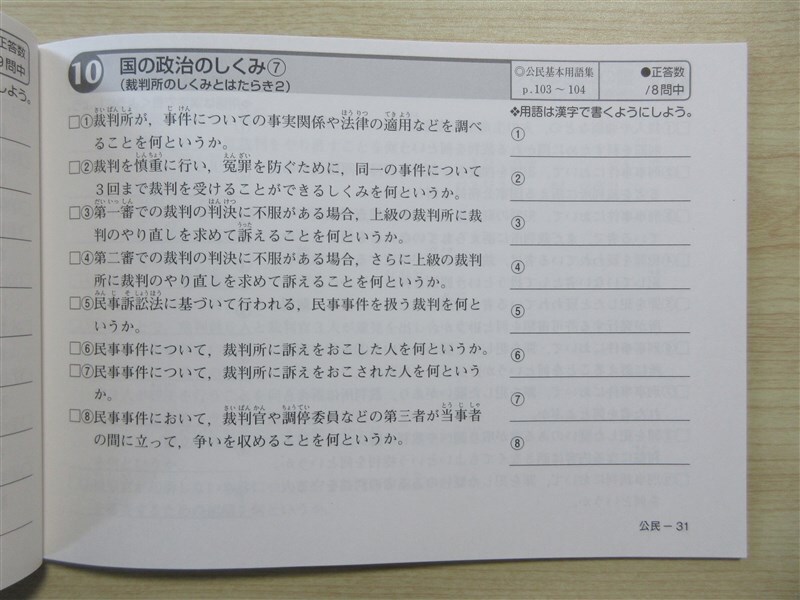 正答数
9問中
しよう。
10 国の政治のしくみ⑦
(裁判所のしくみとはたらき2)
◎公民基本用語集
p.103 ～ 104
●正答数
/8問中
❖用語は漢字で書くようにしよう。
□①裁判所が，事件についての事実関係や法律の適用などを調べ
ることを何というか。
□②裁判を慎重に行い，冤罪を防ぐために，同一の事件について
３回まで裁判を受けることができるしくみを何というか。
□③第一審での裁判の判決に不服がある場合，上級の裁判所に裁
判のやり直しを求めて訴えることを何というか。
□④第二審での裁判の判決に不服がある場合，さらに上級の裁判
所に裁判のやり直しを求めて訴えることを何というか。
□⑤民事訴訟法に基づいて行われる，民事事件を扱う裁判を何と
いうか。
□⑥民事事件について，裁判所に訴えをおこした人を何というか。
□⑦民事事件について，裁判所に訴えをおこされた人を何という
か。
□⑧民事事件において，裁判官や調停委員などの第三者が当事者
の間に立って，争いを収めることを何というか。
①
②
③
④
⑤
⑥
⑦
⑧
公民－31